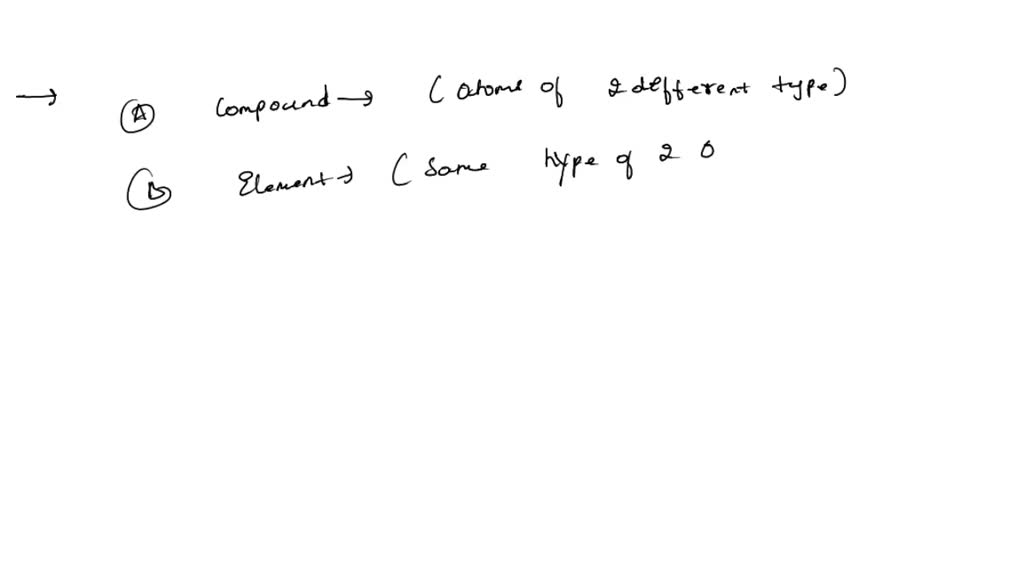 → (A) Compound → (atoms of 2 different type)
(B) Element → (Same type of 2 O